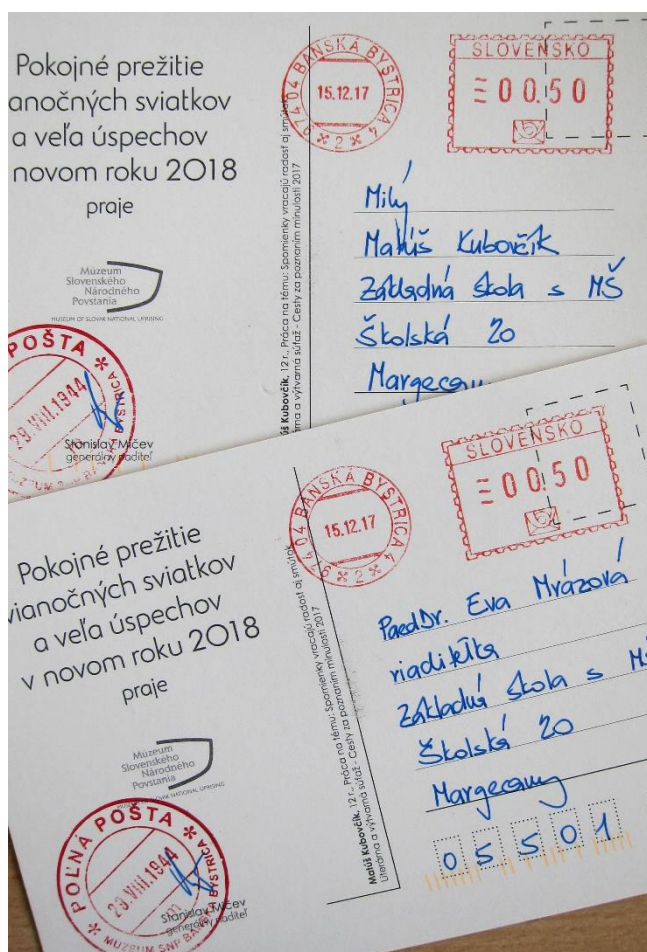 Pokojné prežitie
anočných sviatkov
a veľa úspechov
novom roku 2018
praje
Múzeum
Slovenského
Národného
Povstania
MUSEUM OF SLOVAK NATIONAL UPRISING
POŠTA
29.VIII.1944
BYSTRICA
Stanislav Mičev
generálny riaditeľ
úš Kubovčík, 12 r., Práca na tému: Spomienky vracajú radosť aj smútok
rna a výtvarná súťaž - Cesty za poznaním minulosti 2017
974 04 BANSKÁ BYSTRICA 4
15.12.17
2
SLOVENSKO
00.50
Milý
Matúš Kubovčík
Základná škola s MŠ
Školská 20
Margecany
Pokojné prežitie
vianočných sviatkov
a veľa úspechov
v novom roku 2018
praje
Múzeum
Slovenského
Národného
Povstania
MUSEUM OF SLOVAK NATIONAL UPRISING
POĽNÁ POŠTA
29.VIII.1944
MUZEUM SNP BANSKÁ BYSTRICA
Stanislav Mičev
generálny riaditeľ
Matúš Kubovčík, 12 r., Práca na tému: Spomienky vracajú radosť aj smútok
Literárna a výtvarná súťaž - Cesty za poznaním minulosti 2017
974 04 BANSKÁ BYSTRICA 4
15.12.17
2
SLOVENSKO
00.50
PaedDr. Eva Mrázová
riaditeľka
Základná škola s MŠ
Školská 20
Margecany
05501